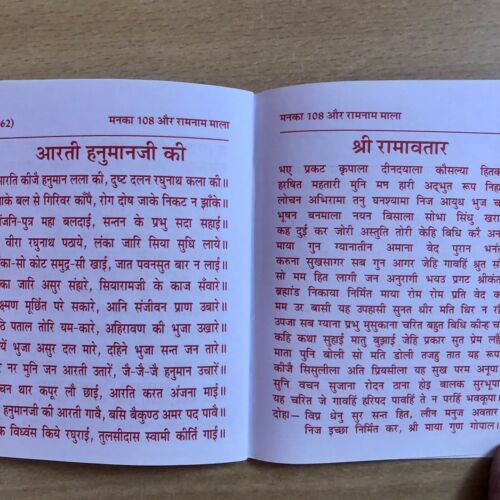 62)
मनका 108 और रामनाम माला
आरती हनुमानजी की
आरति कीजै हनुमान लला की, दुष्ट दलन रघुनाथ कला की॥
जाके बल से गिरिवर काँपै, रोग दोष जाके निकट न झाँके॥
अंजनि-पुत्र महा बलदाई, सन्तन के प्रभु सदा सहाई॥
वीरा रघुनाथ पठाये, लंका जारि सिया सुधि लाये॥
लंका-सो कोट समुद्र-सी खाई, जात पवनसुत बार न लाई॥
जारि असुर संहारे, सियारामजी के काज सँवारे॥
लक्ष्मण मूर्छित परे सकारे, आनि संजीवन प्राण उबारे॥
पैठे पताल तोरि यम-कारे, अहिरावण की भुजा उखारे॥
बायें भुजा असुर दल मारे, दहिने भुजा सन्त जन तारे॥
सुर नर मुनि जन आरती उतारें, जै-जै-जै हनुमान उचारें॥
कंचन थार कपूर लौ छाई, आरति करत अंजना माई॥
हनुमानजी की आरती गावै, बसि बैकुण्ठ अमर पद पावै॥
विध्वंस किये रघुराई, तुलसीदास स्वामी कीर्ति गाई॥
मनका 108 और रामनाम माला
श्री रामावतार
भए प्रकट कृपाला दीनदयाला कौसल्या
हरषित महतारी मुनि मण हारी अद्भुत रूप
लोचन अभिरामा तनु घनश्यामा निज आयुध भुज
भूषन बनमाला नयन बिसाला सोभा सिंधु
कह दुई कर जोरी अस्तुति तोरी केहि बिधि करैं
माया गुन ग्यानातीन अमाना वेद पुरान
करुना सुखसागर सब गुन आगर जेहि गावहिं श्रुति
सो मम हित लागी जन अनुरागी भयउ प्रगट श्रीकंत
ब्रह्मांड निकाया निर्मित माया रोम रोम प्रति वेद
मम उर बासी यह उपहासी सुनत धीर मति थिर न
उपजा सब ग्याना प्रभु मुसुकाना चरित बहुत बिधि कीन्ह
कहि कथा सुहाई मातु बुझाई जेहि प्रकार सुत प्रेम
माता पुनि बोली सो मति डोली तजहु तात यह
कीजै सिसुलीला अति प्रियसीला यह सुख परम अनूपा
सुनि वचन सुजाना रोदन ठाना होइ बालक सुरभूपा
यह चरित जे गावहिं हरिपद पावहिं ते न परहिं भवकूपा
दोहा— विप्र धेनु सुर सन्त हित, लीन मनुज अवतार
निज इच्छा निर्मित कर, श्री माया गुण गोपाल।